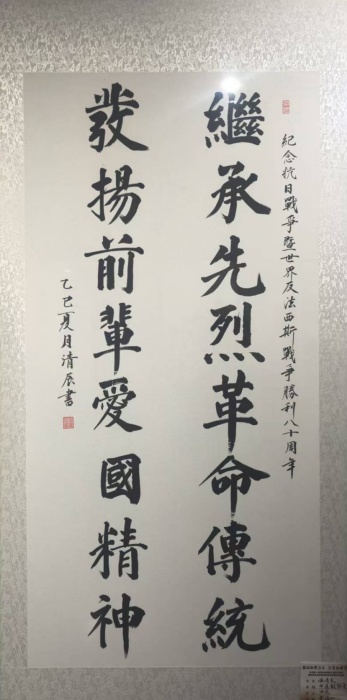 紀念抗日戰爭暨世界反法西斯戰爭勝利八十周年
繼承先烈革命傳統
發揚前輩愛國精神
乙巳夏月清辰書